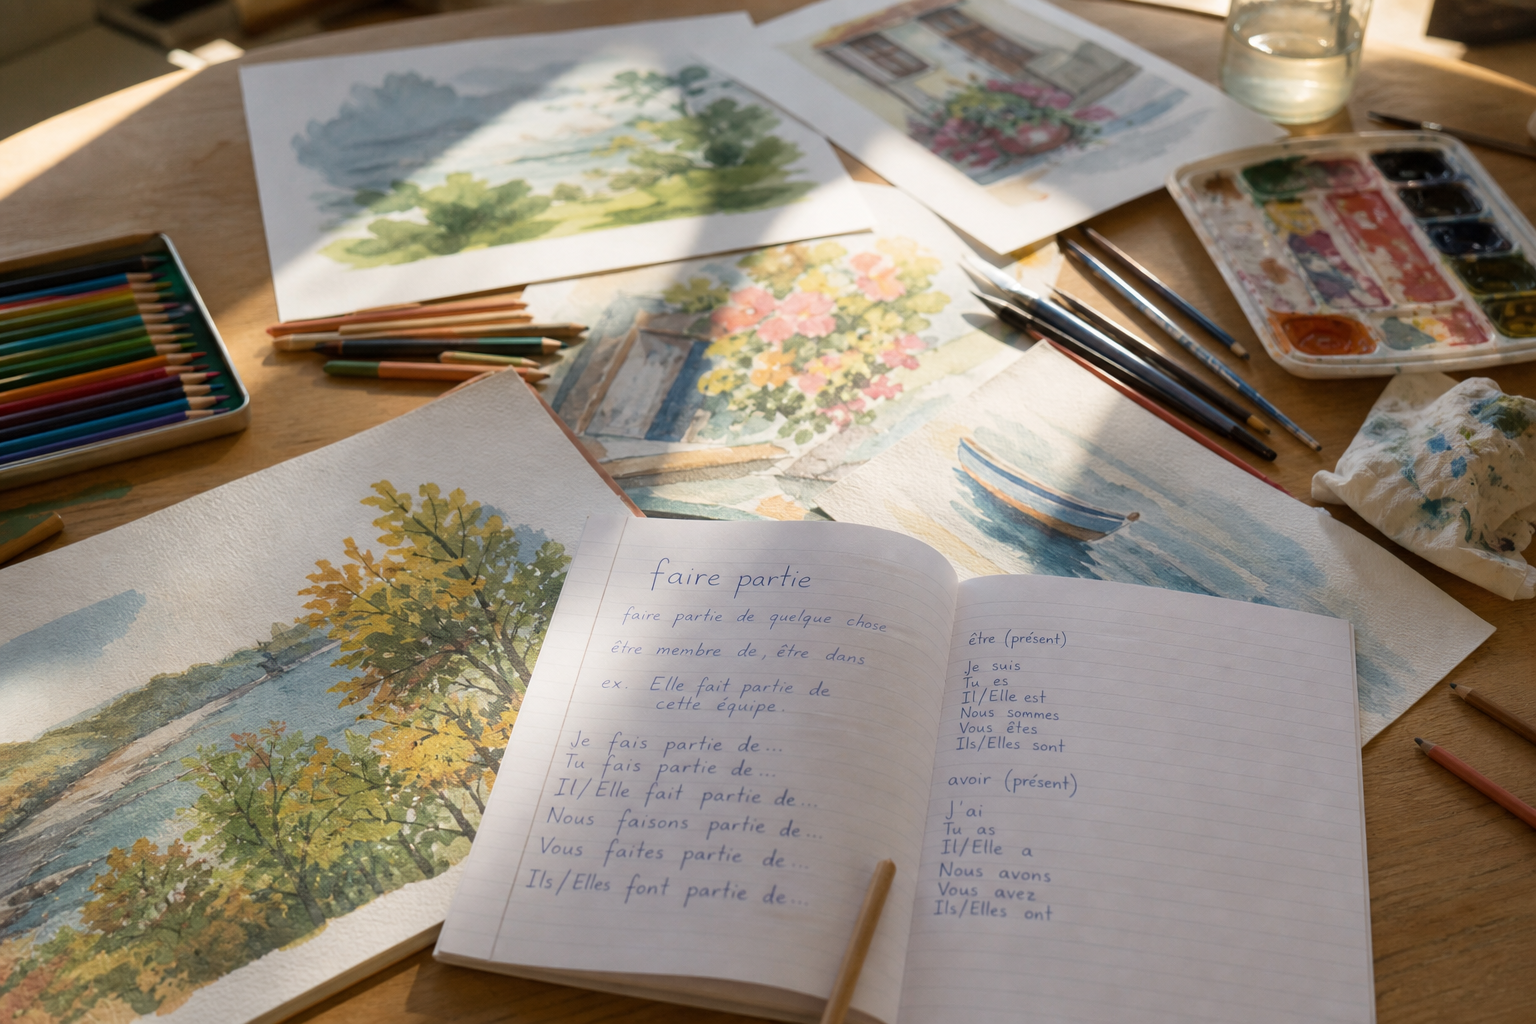 faire partie
faire partie de quelque chose
être membre de, être dans
ex. Elle fait partie de
cette équipe.
Je fais partie de...
Tu fais partie de...
Il/Elle fait partie de...
Nous faisons partie de...
Vous faites partie de...
Ils/Elles font partie de...
être (présent)
Je suis
Tu es
Il/Elle est
Nous sommes
Vous êtes
Ils/Elles sont
avoir (présent)
J'ai
Tu as
Il/Elle a
Nous avons
Vous avez
Ils/Elles ont